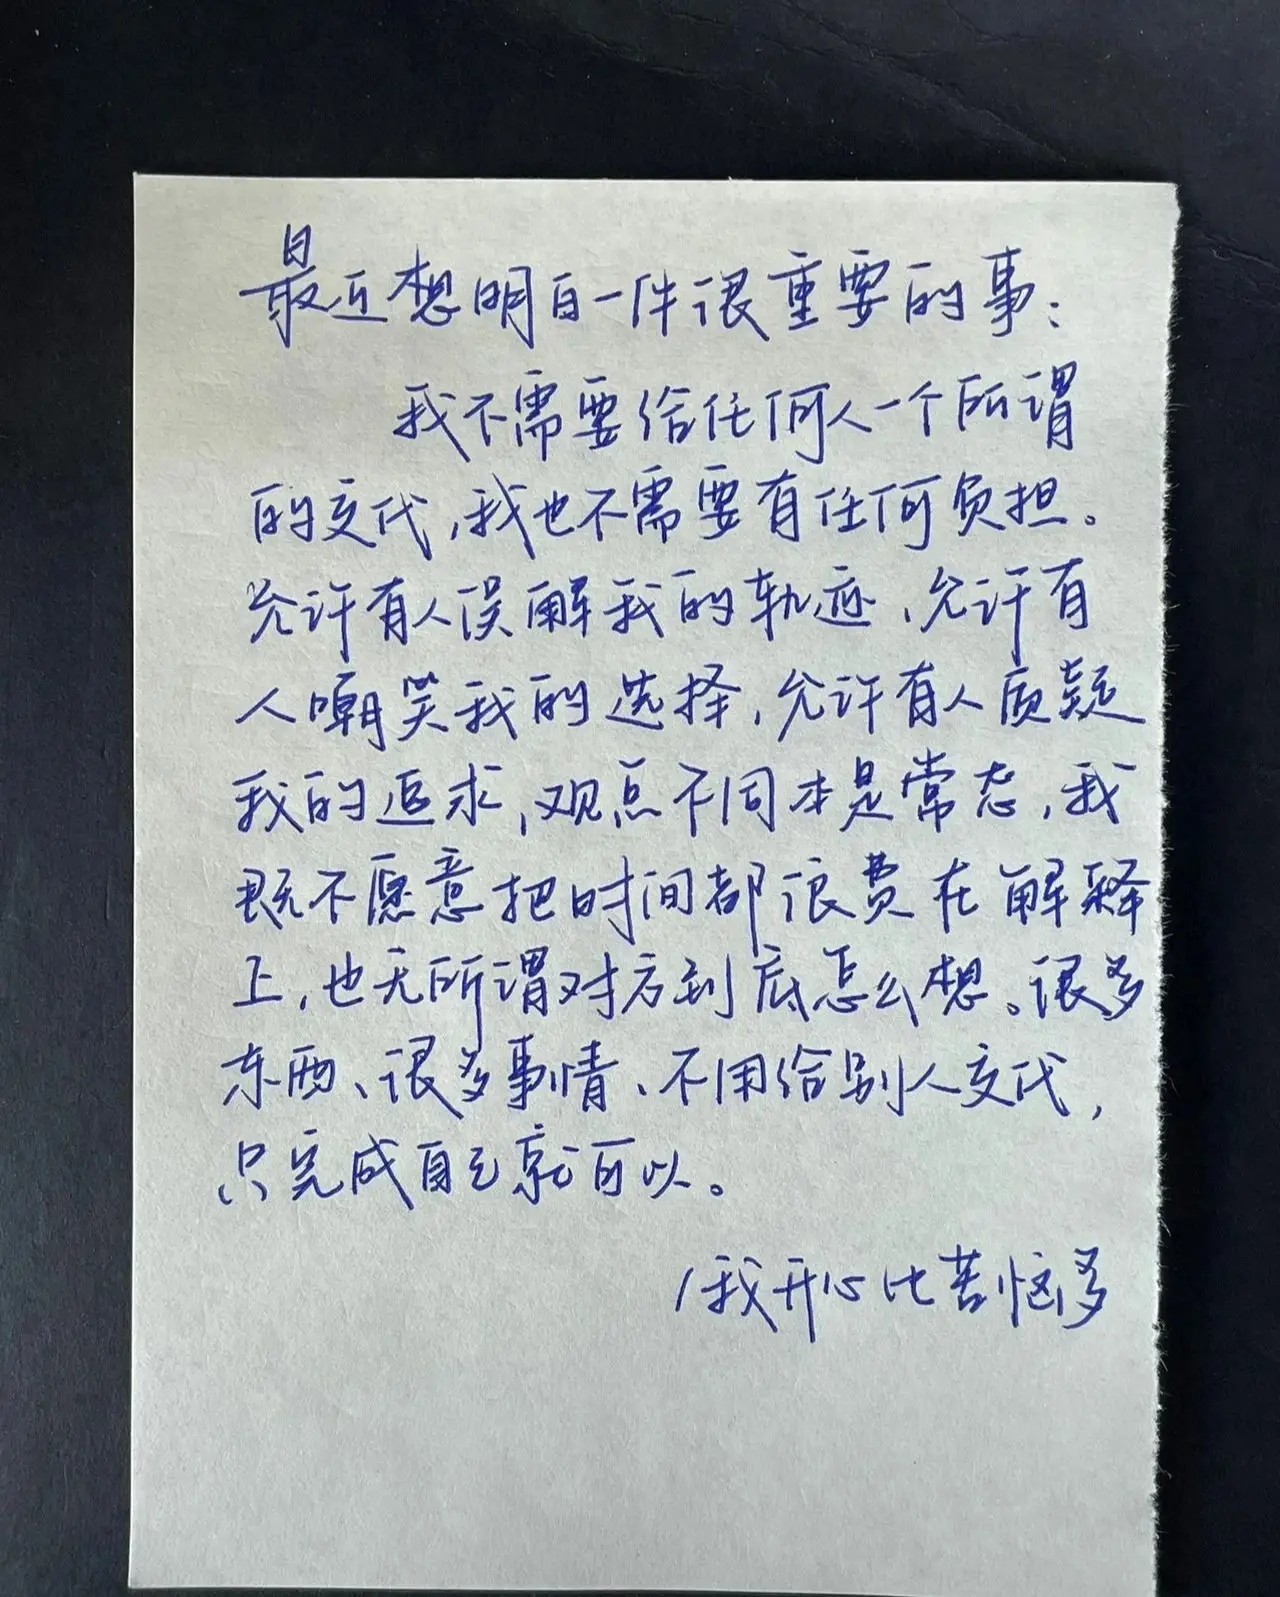 最近想明白一件很重要的事：
我不需要给任何人一个所谓
的交代，我也不需要有任何负担。
允许有人误解我的轨迹、允许有
人嘲笑我的选择，允许有人质疑
我的追求，观点不同本是常态，我
既不愿意把时间都浪费在解释
上，也无所谓对方到底怎么想。很多
东西、很多事情、不用给别人交代，
只完成自己就可以。
/我开心比苦恼多